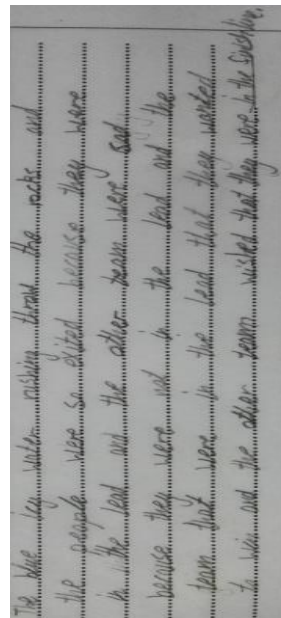 The blue icy water rushing throw the rocks and
the people were so exited because they were
in the lead and the other team were sad
because they were not in the lead and the
team that were in the lead that they wanted
to win and the other team wished that they were in the